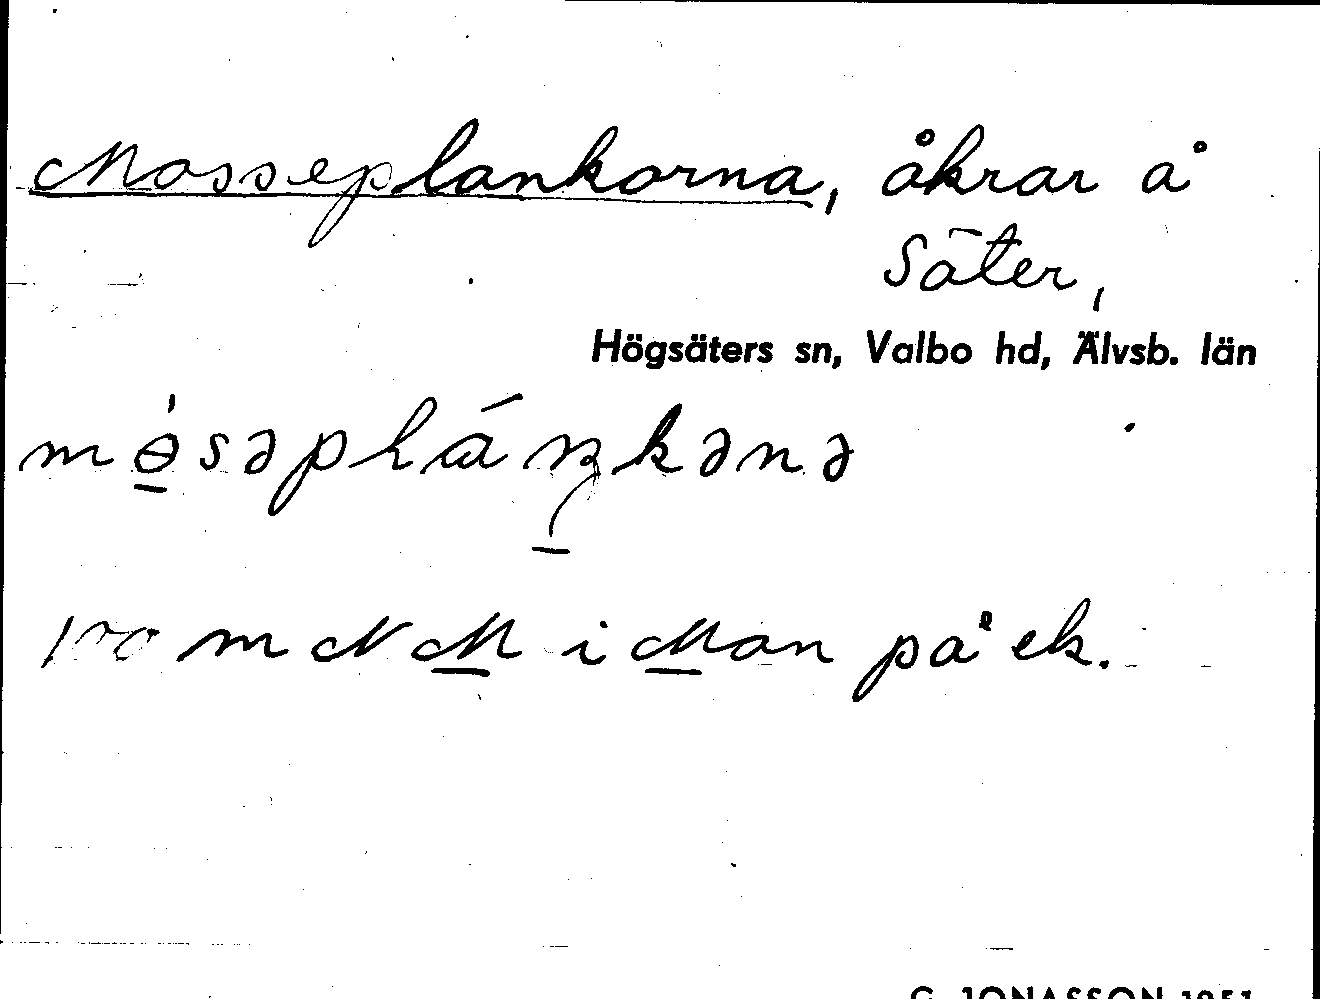 Mosseplankorna, åkrar å
Säter,
Högsäters sn, Valbo hd, Älvsb. län
mɵ̀səpláŋkənə
100 m N M i Mon på ek.
G. JONASSON 1951